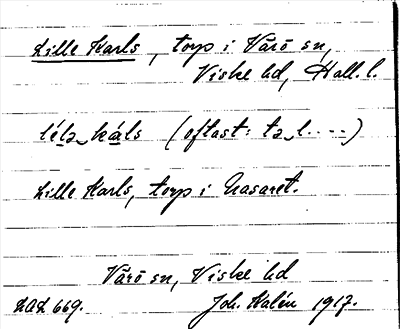 Lille Karls, torp i Värö sn,
Viske hd, Hall. l.
lélə káls (oftast: tə l....)
Lille Karls, torp i Nasaret.
Värö sn, Viske hd
LAL 669. Joh. Kalén 1917.